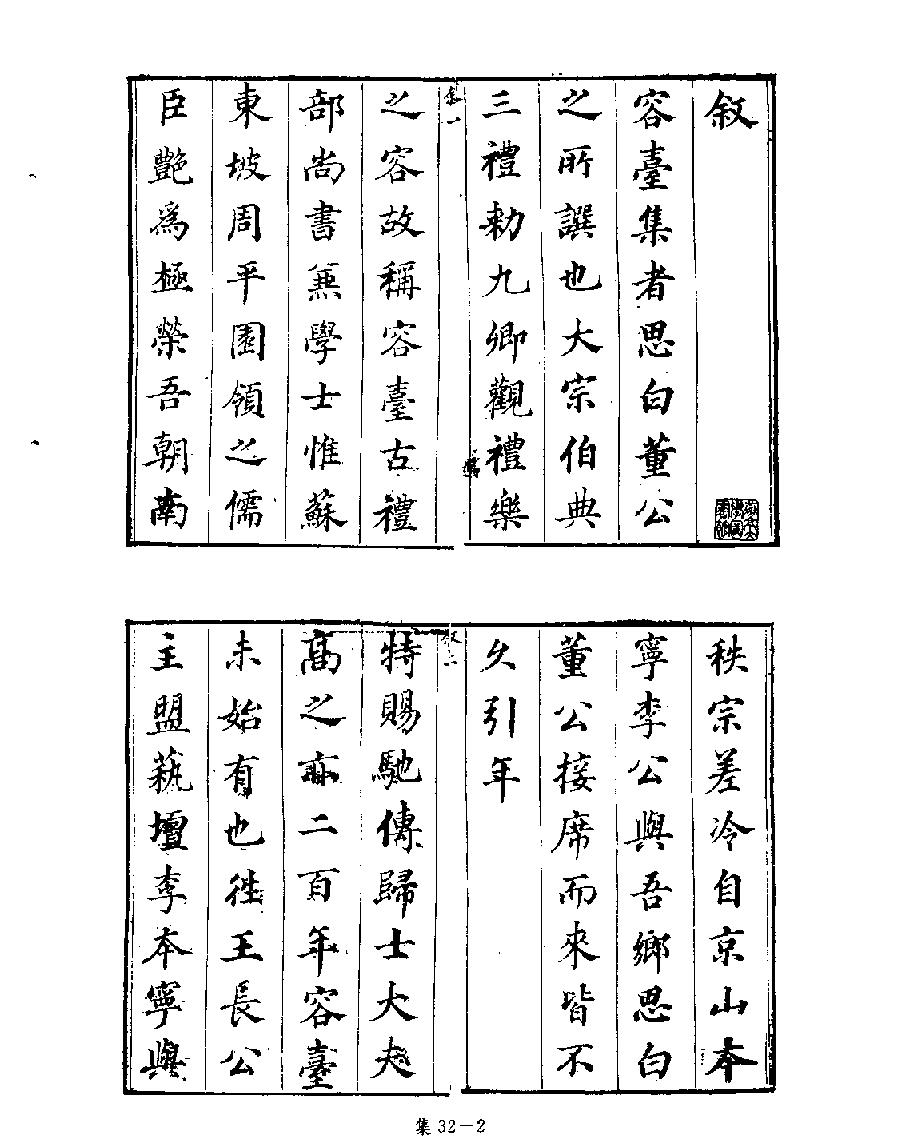 叙
容臺集者思白董公
之所譔也大宗伯典
三禮勅九卿觀禮樂
之容故稱容臺古禮
部尚書蒹學士惟蘇
東坡周平園領之儒
臣艷爲極榮吾朝南
秩宗差冷自京山本
寧李公與吾鄉思白
董公接席而來皆不
久引年
特賜馳傳歸士大夫
高之亦二百年容臺
未始有也徃王長公
主盟蓺壇李本寧與
叙二
集 32－2